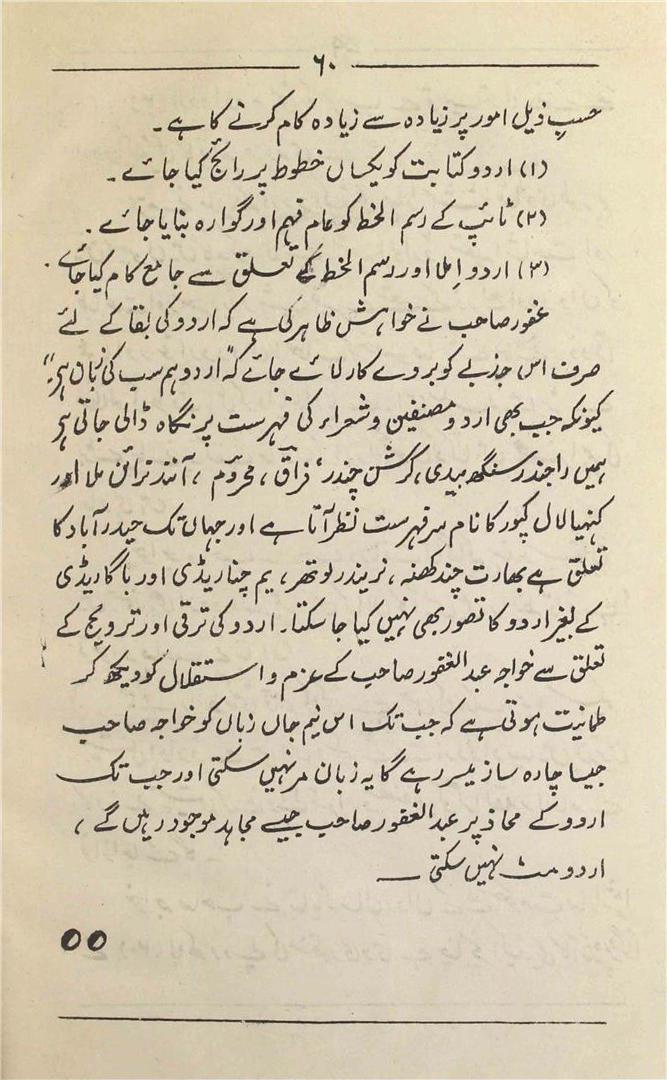 ۶۰
حسبِ ذیل امور پر زیادہ سے زیادہ کام کرنے کا ہے۔
(۱) اردو کتابت کو یکساں خطوط پر رائج کیا جائے۔
(۲) ٹائپ کے رسم الخط کو عام فہم اور گوارہ بنایا جائے۔
(۳) اردو اِملا اور رسم الخط کے تعلق سے جامع کام کیا جائے۔
غفور صاحب نے خواہش ظاہر کی ہے کہ اردو کی بقا کے لئے
صرف اس جذبے کو بروے کار لائے جائے کہ "اردو ہم سب کی زبان ہے"
کیونکہ جب بھی اردو مصنفین و شعراء کی فہرست پر نگاہ ڈالی جاتی ہے
ہمیں راجندر سنگھ بیدی، کرشن چندر، فراق، محروم، آنند نرائن ملا اور
کنہیا لال کپور کا نام سرفہرست نظر آتا ہے اور جہاں تک حیدرآباد کا
تعلق ہے بھارت چند کھنہ، نریندر لوتھر، یم چنا ریڈی اور باگا ریڈی
کے بغیر اردو کا تصور بھی نہیں کیا جا سکتا۔ اردو کی ترقی اور ترویج کے
تعلق سے خواجہ عبدالغفور صاحب کے عزم و استقلال کو دیکھ کر
طمانیت ہوتی ہے کہ جب تک اس نیم جاں زباں کو خواجہ صاحب
جیسا چارہ ساز میسر رہے گا یہ زبان مر نہیں سکتی اور جب تک
اردو کے محاذ پر عبدالغفور صاحب جیسے مجاہد موجود رہیں گے،
اردو مٹ نہیں سکتی۔